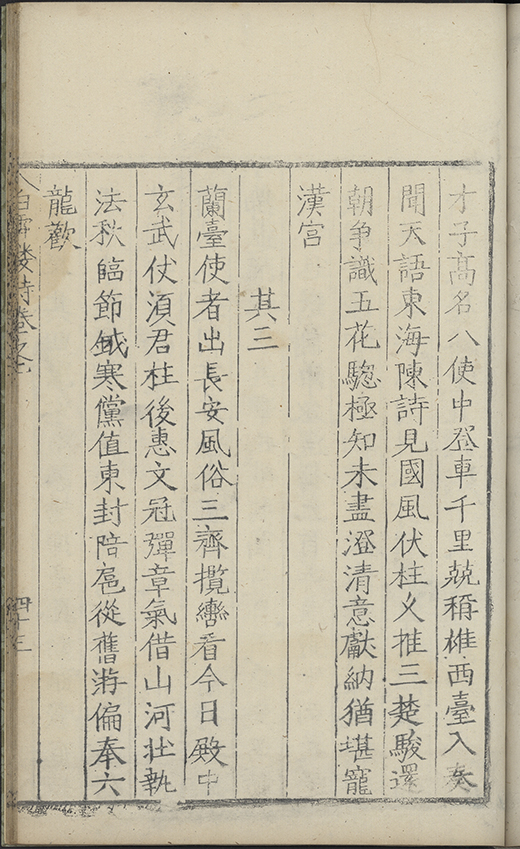 才子高名八使中登車千里競稱雄西臺入奏
聞天語東海陳詩見國風伏柱乂推三楚駿還
朝爭識五花驄極知未盡澄清意獻納猶堪寵
漢宮
其三
蘭臺使者出長安風俗三齊攬轡看今日殿中
玄武仗須君柱後惠文冠彈章氣借山河壯執
法秋臨節鉞寒儻值東封陪扈從舊游偏奉六
龍歡
白雪樓詩卷之七
四十三